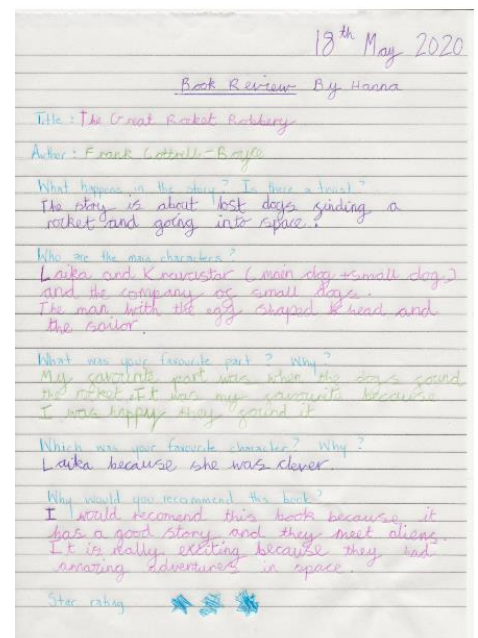 18th May 2020
Book Review By Hanna
Title: The Great Rocket Robbery
Author: Frank Cottrell-Boyce
What happens in the story? Is there a twist?
The story is about lost dogs finding a
rocket and going into space.
Who are the main characters?
Laika and (main dog + small dog)
and the company of small dogs.
The man with the egg shaped head and
the sailor.
What was your favourite part? Why?
My favourite part was when the dogs found
the rocket. It was my favourite because
I was happy they found it
Which was your favourite character? Why?
Laika because she was clever
Why would you recommend this book?
I would recomend this book because it
has a good story and they meet aliens.
It is really exciting because they had
amazing adventures in space.
Star rating